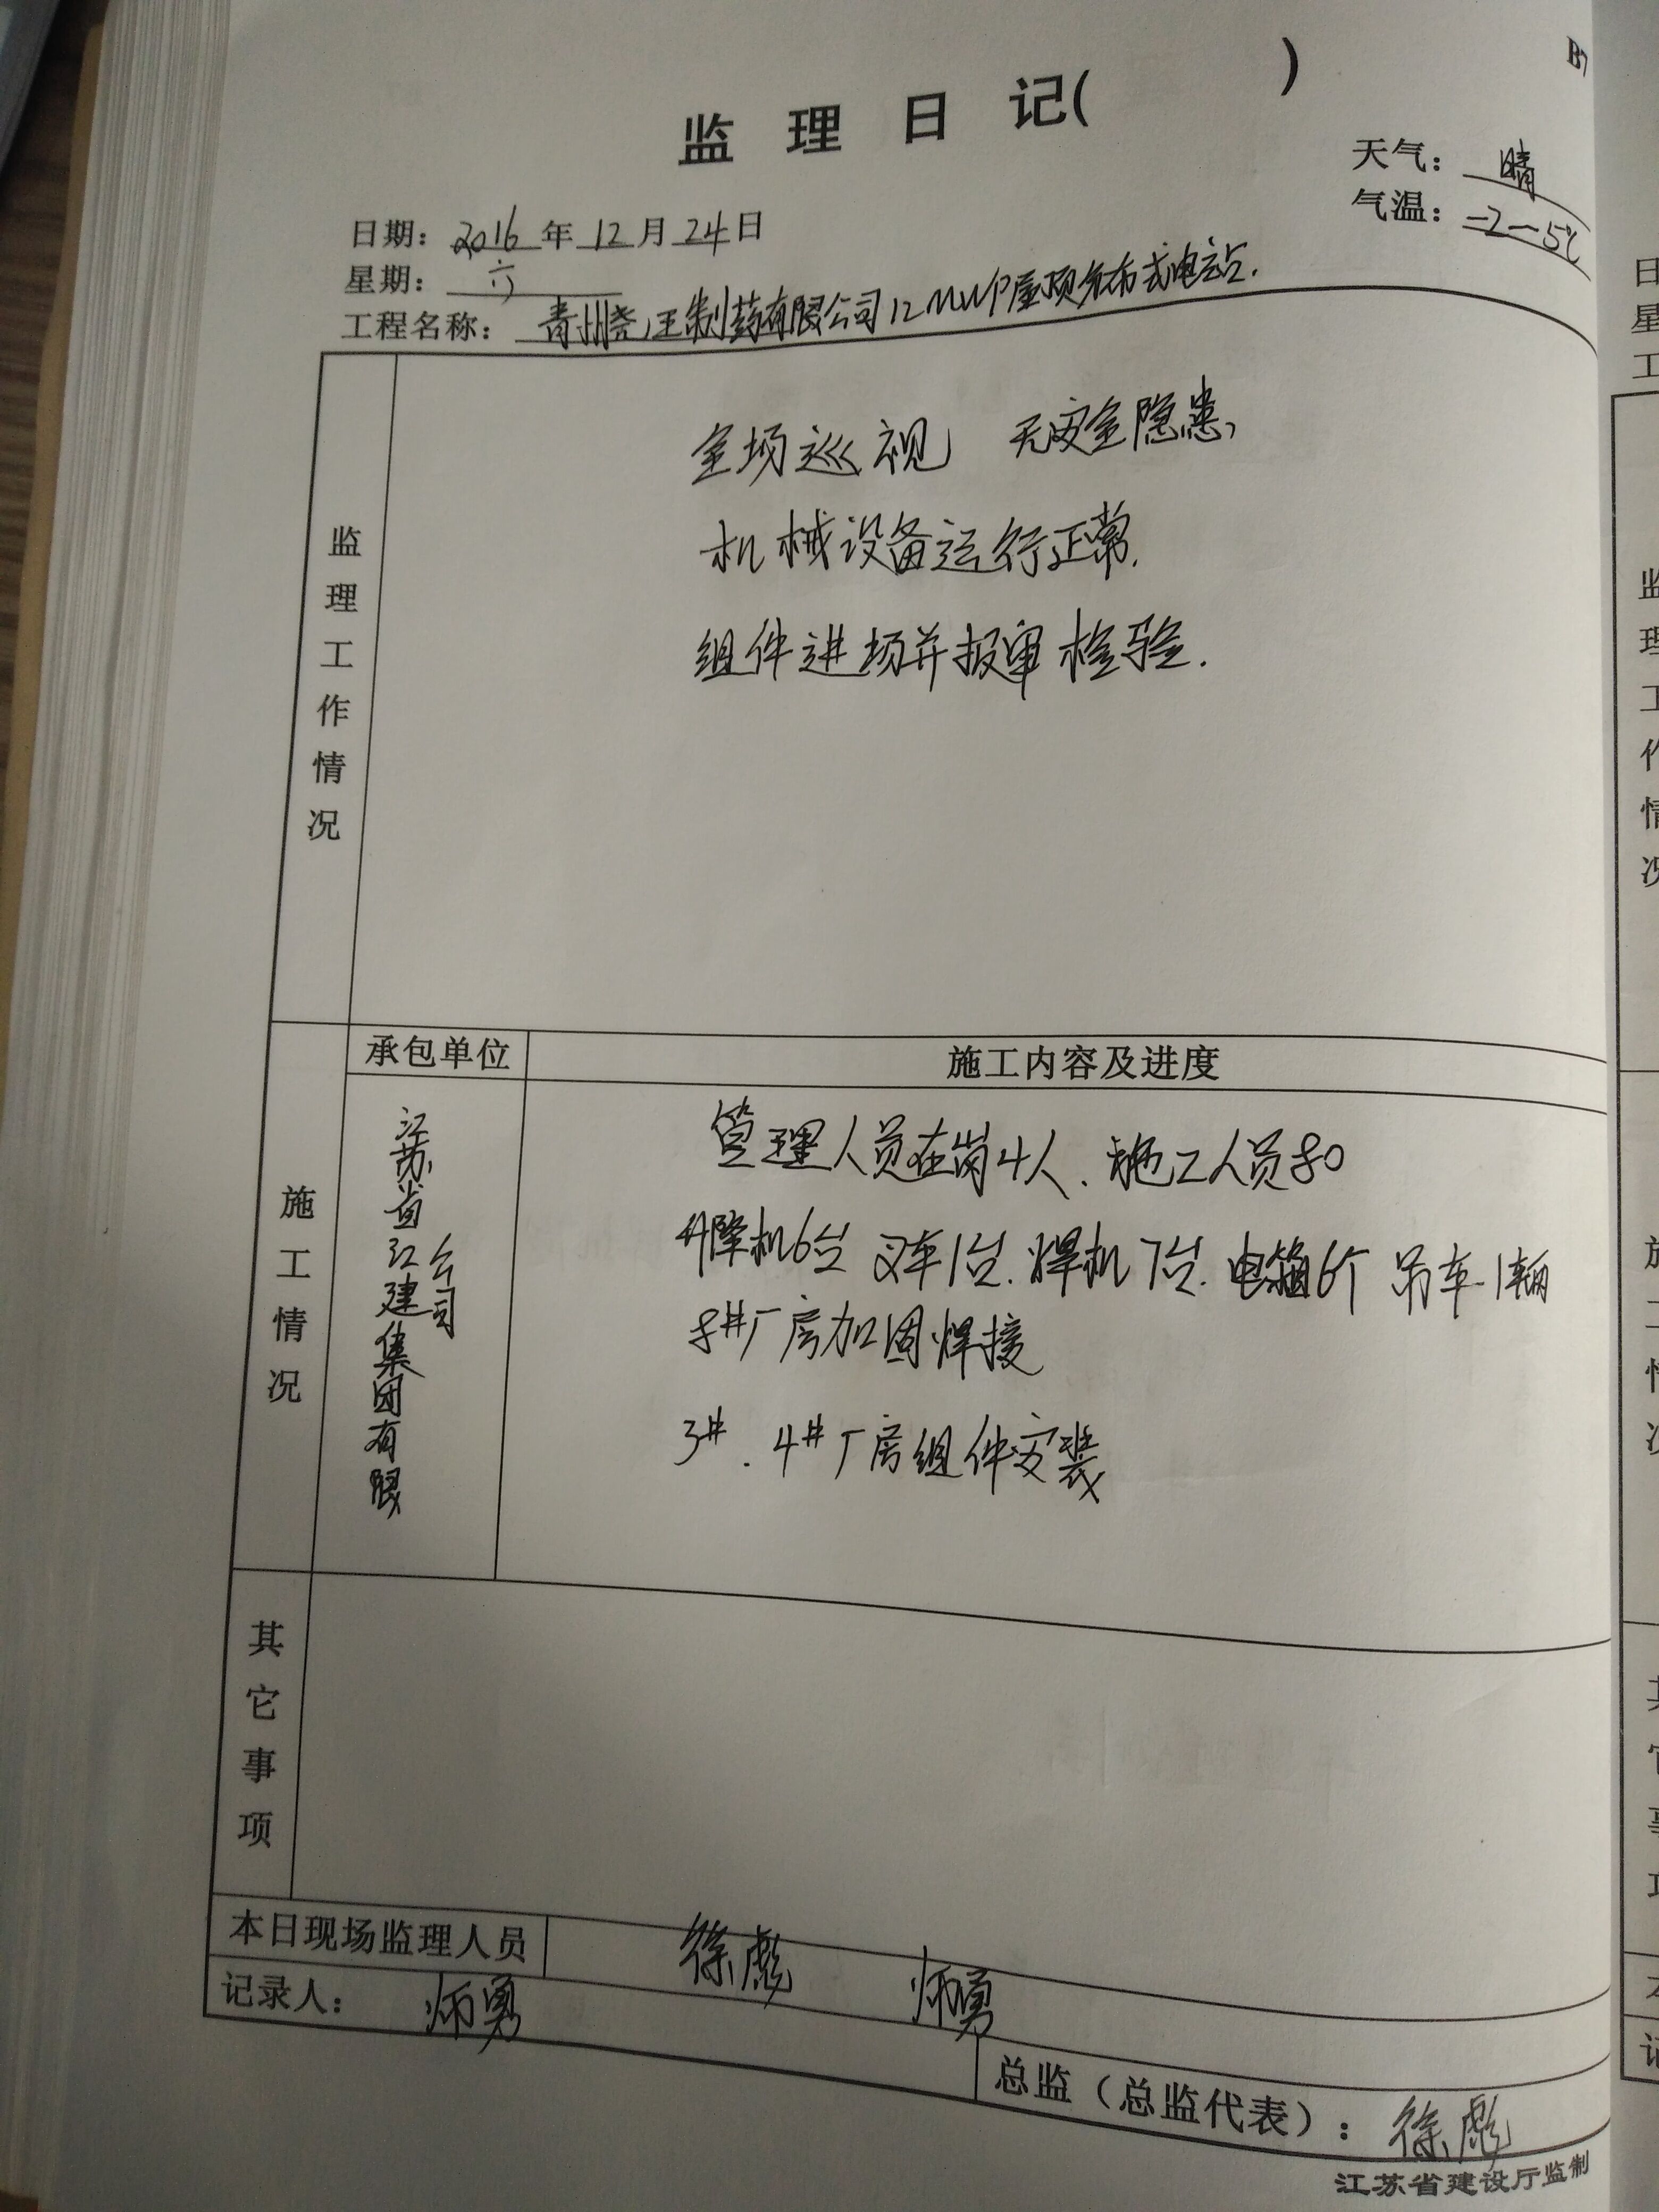 监理日记(          )
B7
天气：晴
气温：-2-5℃
日期：2016年12月24日
星期：六
工程名称：青州尧王制药有限公司12MWP屋顶分布式电站.
监理工作情况
全场巡视 无安全隐患,
机械设备运行正常.
组件进场并报审检验.
施工情况
承包单位
施工内容及进度
江苏省江建集团有限公司
管理人员在岗4人、施工人员80
升降机6台 叉车1台.焊机7台.电箱6个 吊车1辆
8#厂房加固焊接
3#.4#厂房组件安装
其它事项
本日现场监理人员 徐彪 师勇
记录人：师勇
总监（总监代表）：徐彪
江苏省建设厅监制